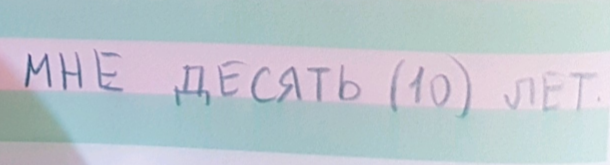 МНЕ ДЕСЯТЬ (10) ЛЕТ.